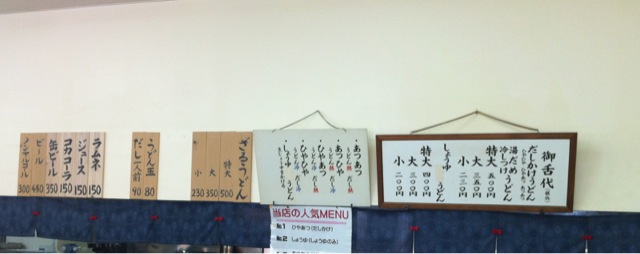 御舌代
だしかけうどん
湯だめうどん
冷しつけ
特大 五〇〇円
大 三五〇円
小 二三〇円
しょうゆうどん
特大 四〇〇円
大 三〇〇円
小 二〇〇円
・あつあつ
・あつひや
・ひやあつ
・ひやひや
・しょうゆ うどん
ざるうどん
特大 500
大 350
小 230
うどん玉 80
だし一人前 90
ラムネ 150
ジュース 150
コカコーラ 150
缶ビール 350
ビール 480
ノンアルコール 300
当店の人気MENU
№1 ひやあつ(だしかけ)
№2 しょうゆ(しょうゆのみ)